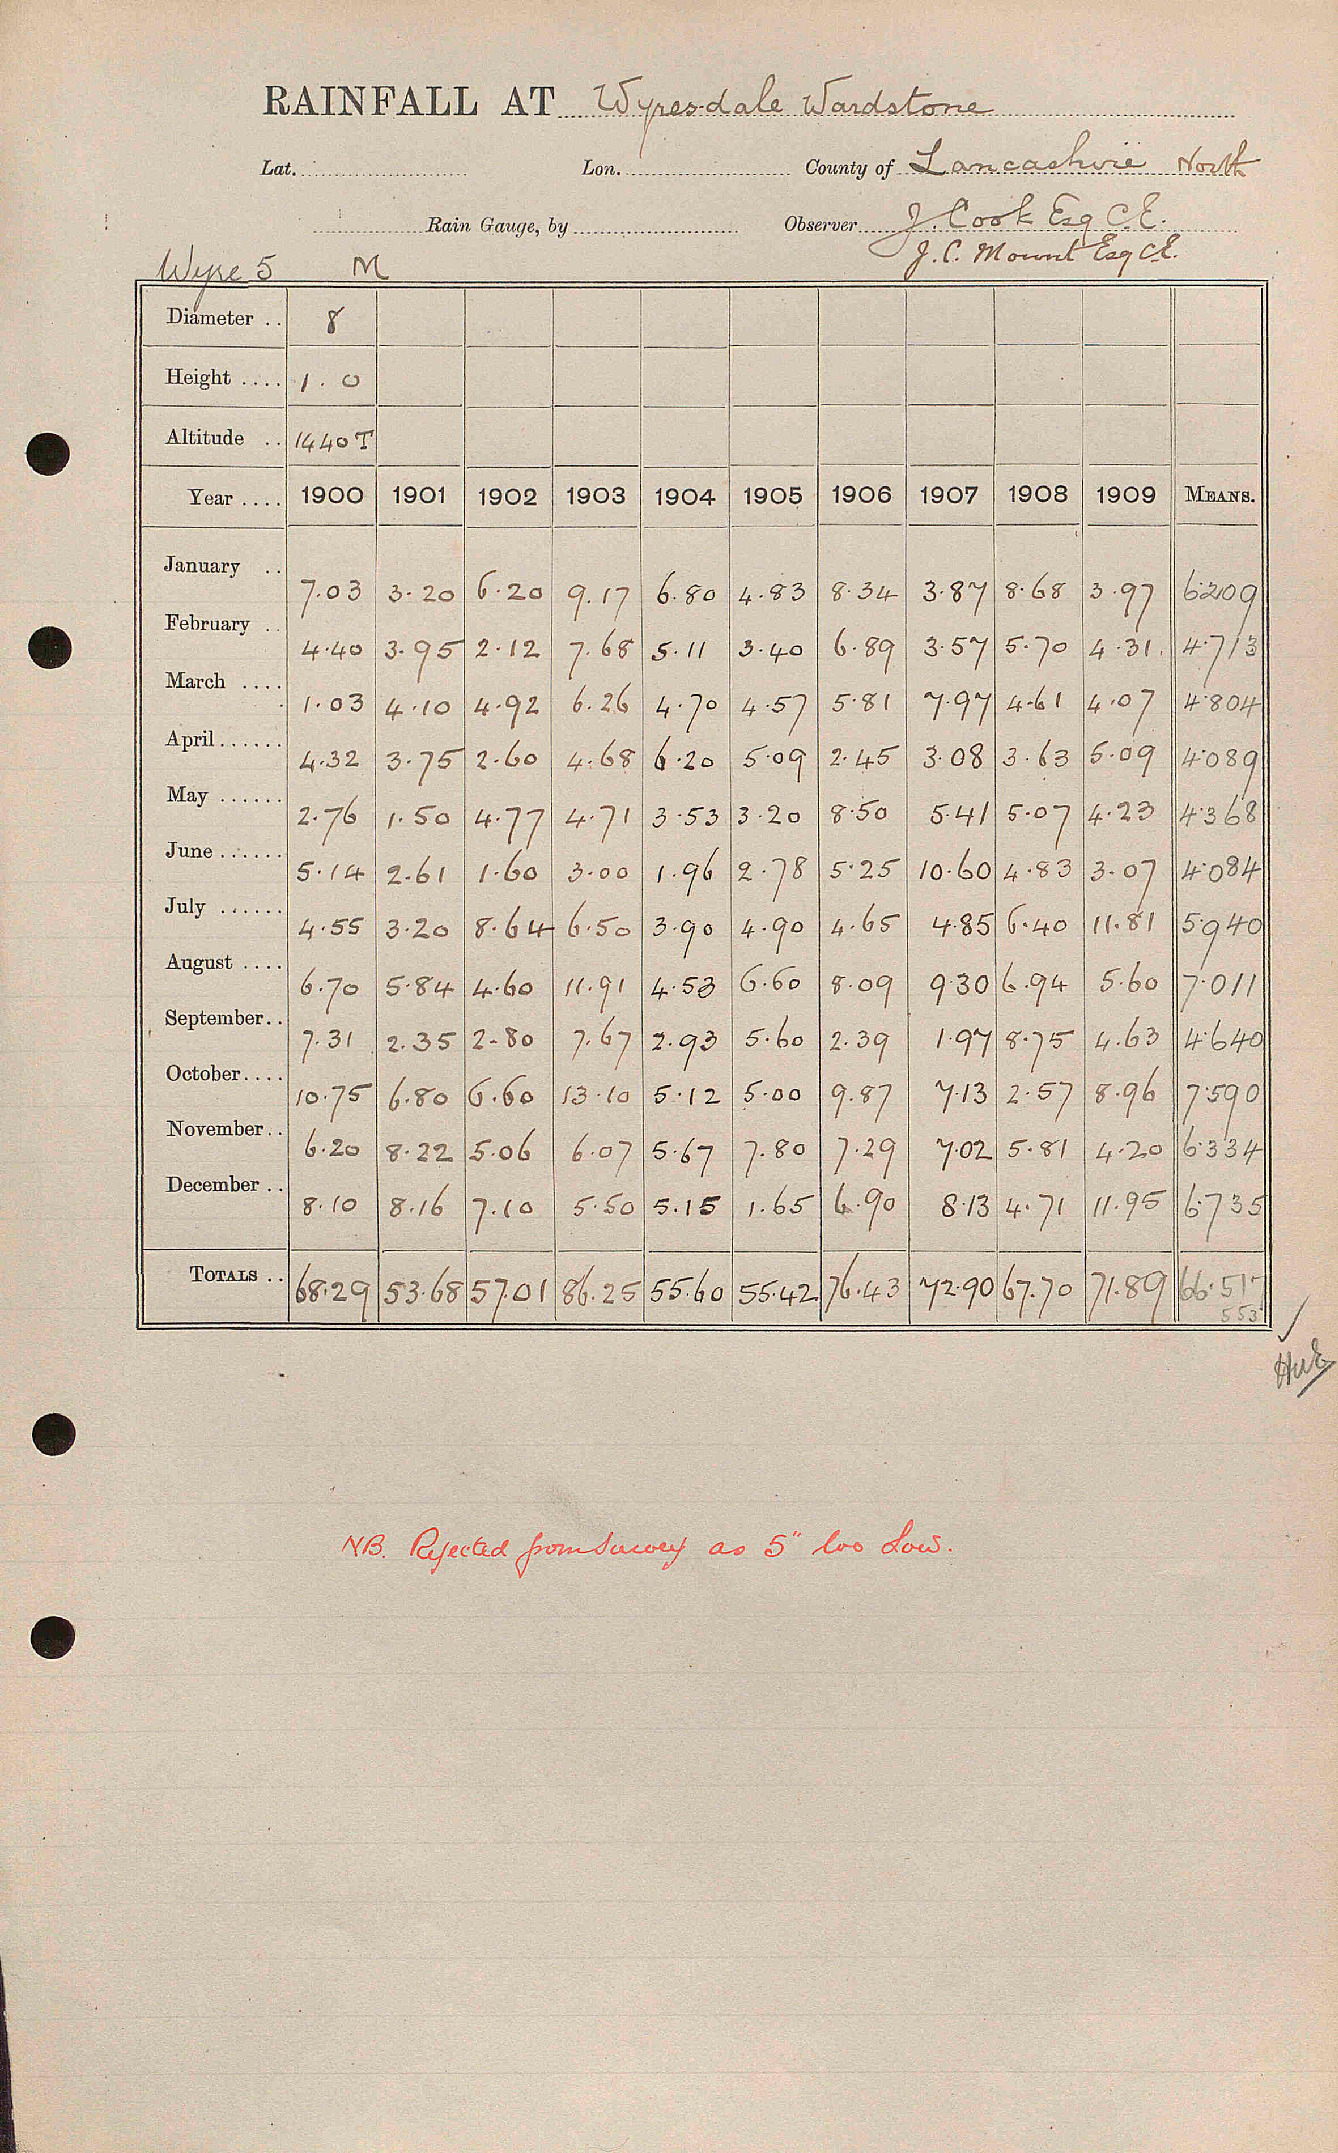 RAINFALL AT Wyresdale Wardstone
Lat. Lon. County of Lancashire North
Rain Gauge, by Observer J. Cook Esq C.E.
J. C. Mount Esq C.E.
Wyre 5 M
Diameter .. 8
Height .... 1.0
Altitude .. 1440 T
Year .... 1900 1901 1902 1903 1904 1905 1906 1907 1908 1909 MEANS.
January .. 7.03 3.20 6.20 9.17 6.80 4.83 8.34 3.87 8.68 3.97 6.209
February .. 4.40 3.95 2.12 7.68 5.11 3.40 6.89 3.57 5.70 4.31 4.713
March .... 1.03 4.10 4.92 6.26 4.70 4.57 5.81 7.97 4.61 4.07 4.804
April...... 4.32 3.75 2.60 4.68 6.20 5.09 2.45 3.08 3.63 5.09 4.089
May ...... 2.76 1.50 4.77 4.71 3.53 3.20 8.50 5.41 5.07 4.23 4.368
June ...... 5.14 2.61 1.60 3.00 1.96 2.78 5.25 10.60 4.83 3.07 4.084
July ...... 4.55 3.20 8.64 6.50 3.90 4.90 4.65 4.85 6.40 11.81 5.940
August .... 6.70 5.84 4.60 11.91 4.53 6.60 8.09 9.30 6.94 5.60 7.011
September.. 7.31 2.35 2.80 7.67 2.93 5.60 2.39 1.97 8.75 4.63 4.640
October.... 10.75 6.80 6.60 13.10 5.12 5.00 9.87 7.13 2.57 8.96 7.590
November.. 6.20 8.22 5.06 6.07 5.67 7.80 7.29 7.02 5.81 4.20 6.334
December .. 8.10 8.16 7.10 5.50 5.15 1.65 6.90 8.13 4.71 11.95 6.735
TOTALS .. 68.29 53.68 57.01 86.25 55.60 55.42 76.43 72.90 67.70 71.89 66.517
553
NB. Rejected from Survey as 5" too Low.